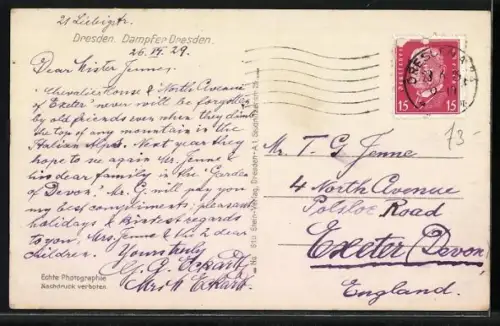 21 Liebigstr.
Dresden. Dampfer Dresden.
26. VI. 29.
Dear Mister Jenne,
"Chevalier House & North Avenue
of Exeter" never will be forgotten
by old friends even when they climb
the top of any mountain in the
Italian Alps. Next year they
hope to see again Mr. Jenne &
his dear family in the "Garden
of Devon". Mr. G will pay you
my best compliments; pleasant
holidays & kindest regards
to you, Mrs. Jenne & the 2 dear
children. Yours truly
G. G. Eckardt
Eckart
Echte Photographie
Nachdruck verboten.
Stein-Verlag, Dresden-A1
DEUTSCHES REICH
15 15
DRESDEN
73-
Mr. T. G Jenne
4 North Avenue
Polsloe Road
Exeter (Devon)
England.